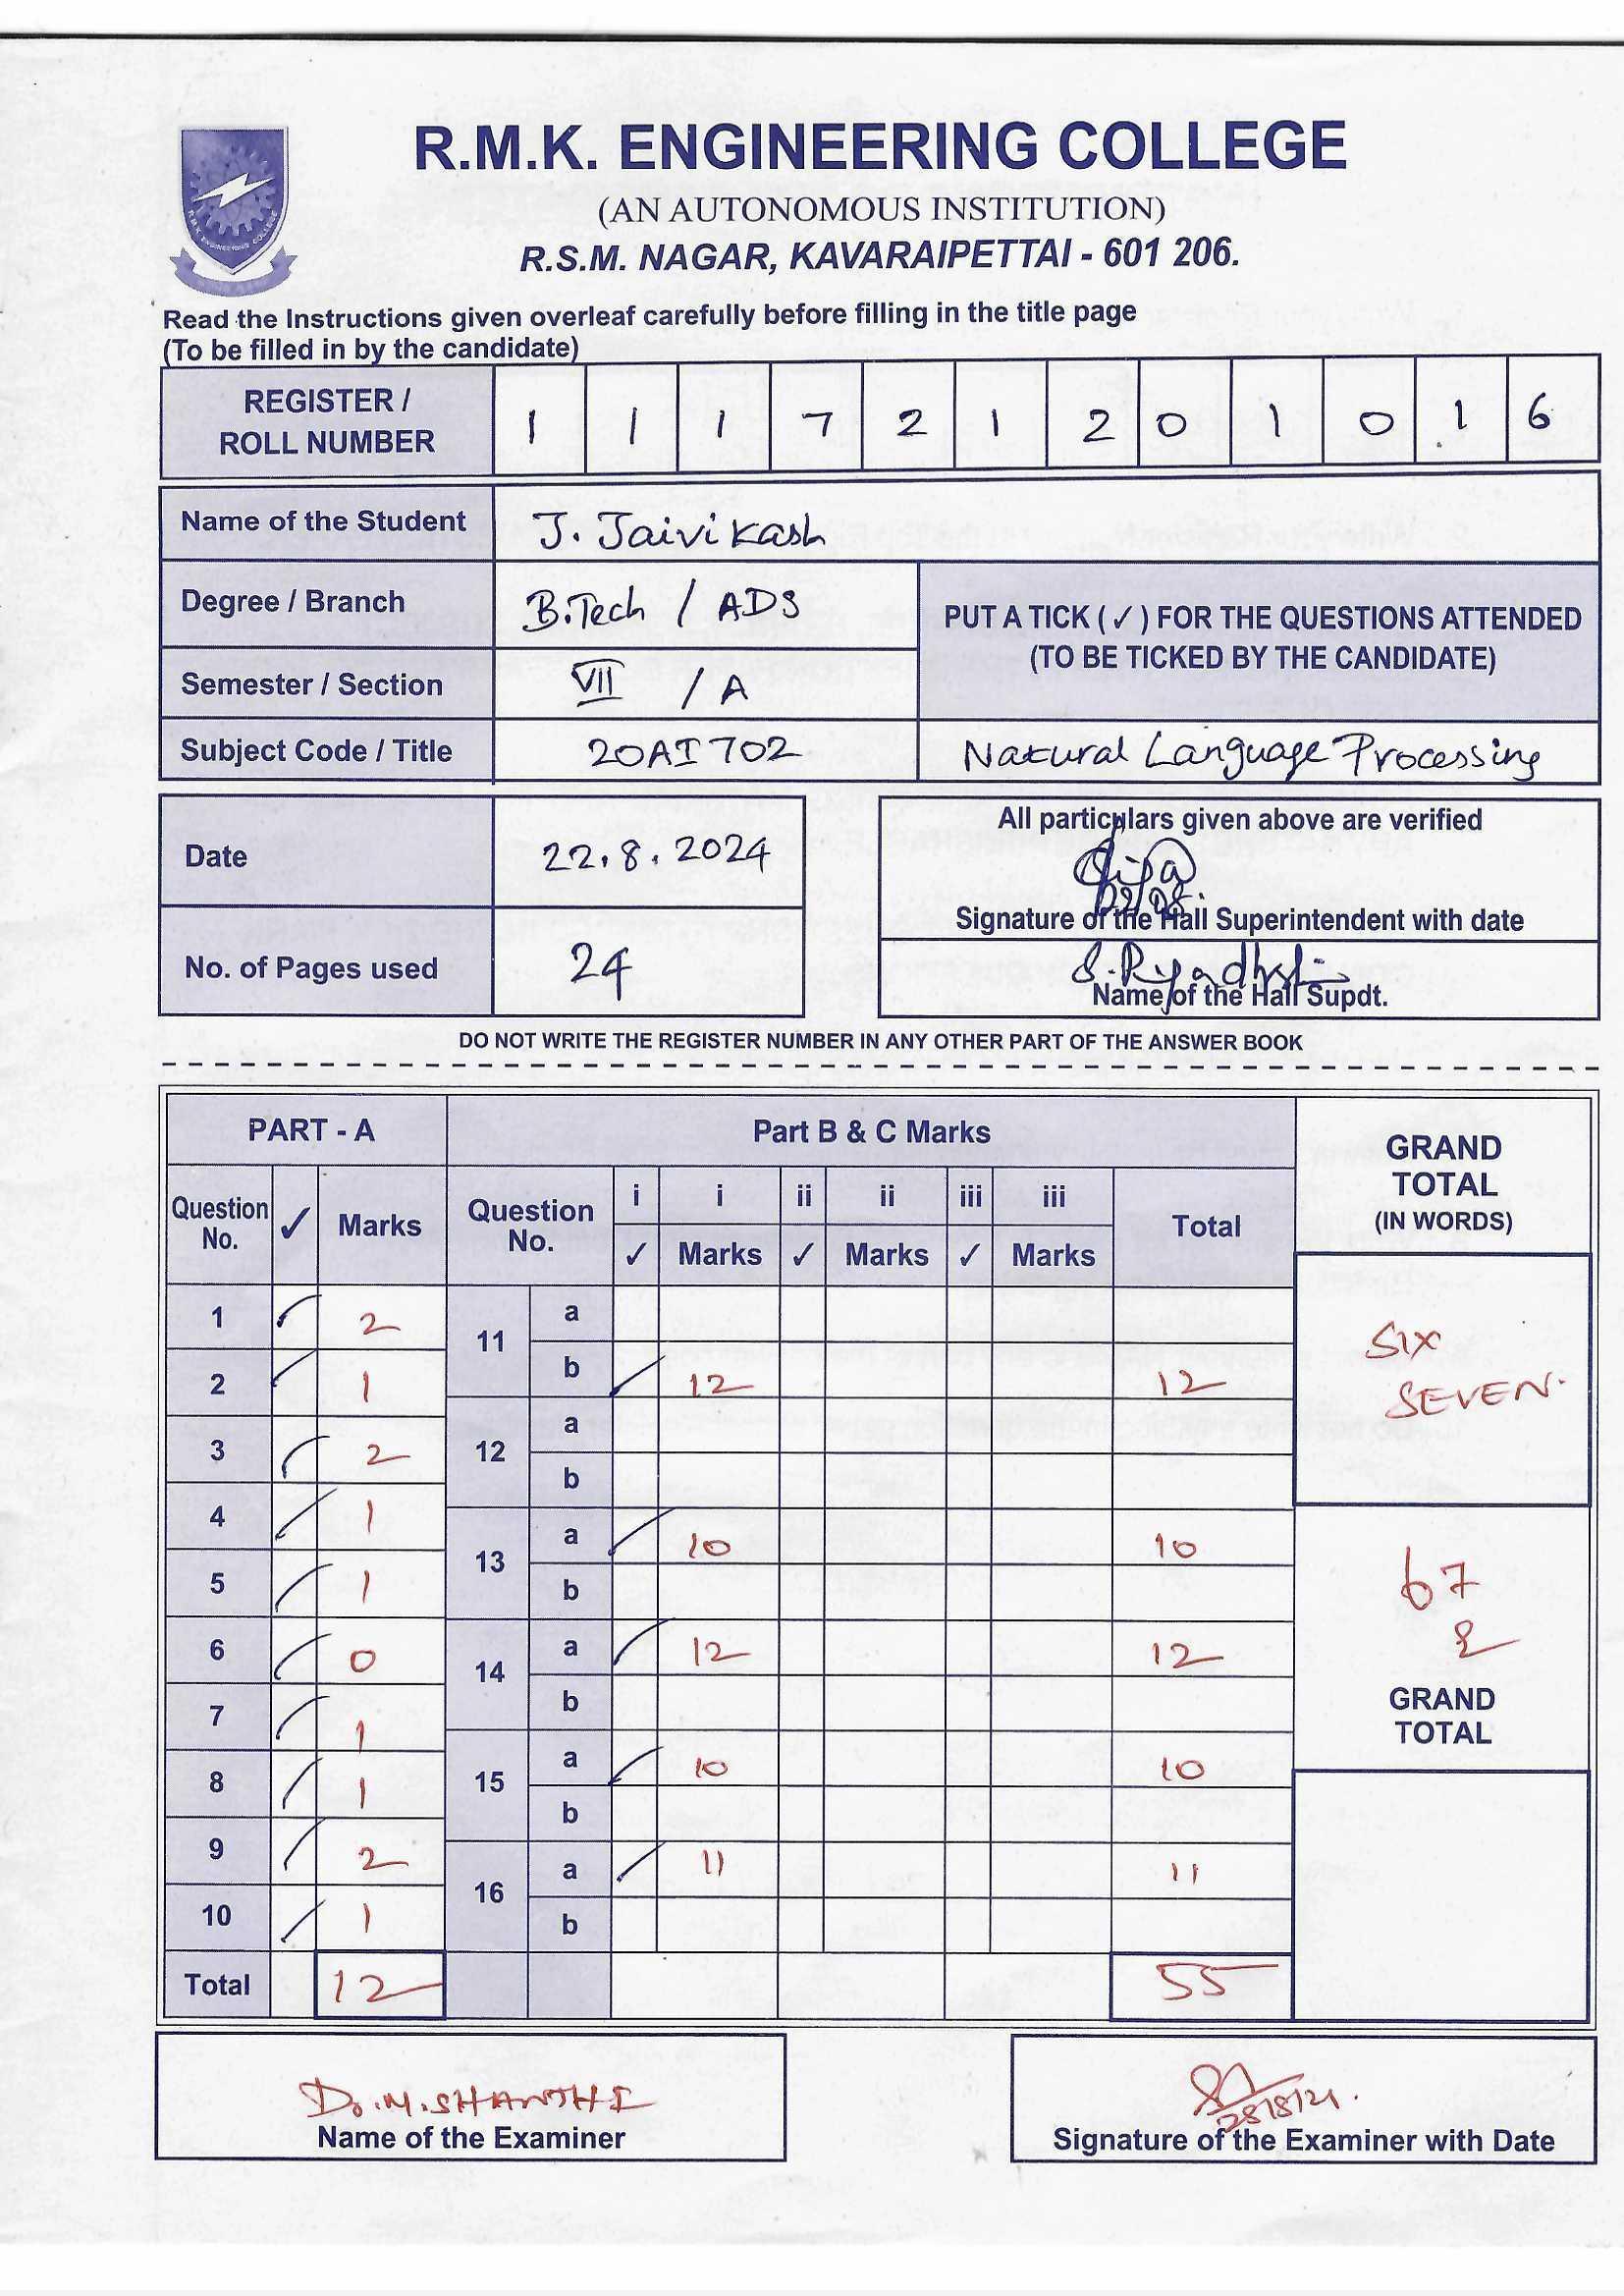 R.M.K. ENGINEERING COLLEGE
(AN AUTONOMOUS INSTITUTION)
R.S.M. NAGAR, KAVARAIPETTAI - 601 206.
R.M.K. ENGINEERING COLLEGE
Read the Instructions given overleaf carefully before filling in the title page
(To be filled in by the candidate)
REGISTER / ROLL NUMBER 1 1 1 7 2 1 2 0 1 0 1 6
Name of the Student J. Jaivikash
Degree / Branch B.Tech / ADS
PUT A TICK ( ✓ ) FOR THE QUESTIONS ATTENDED
(TO BE TICKED BY THE CANDIDATE)
Semester / Section VII / A
Subject Code / Title 20AI702 Natural Language Processing
Date 22.8.2024
All particulars given above are verified
22/08
Signature of the Hall Superintendent with date
No. of Pages used 24
Name of the Hall Supdt.
DO NOT WRITE THE REGISTER NUMBER IN ANY OTHER PART OF THE ANSWER BOOK
PART - A Part B & C Marks GRAND TOTAL (IN WORDS)
Question No. ✓ Marks Question No. i i ii ii iii iii Total
✓ Marks ✓ Marks ✓ Marks
1 ✓ 2 11 a
2 ✓ 1 b ✓ 12 12
SIX
SEVEN.
3 ✓ 2 12 a
b
4 ✓ 1 13 a ✓ 10 10
5 ✓ 1 b
67
6 ✓ 0 14 a ✓ 12 12
7 ✓ 1 b
GRAND TOTAL
8 ✓ 1 15 a ✓ 10 10
b
9 ✓ 2 16 a ✓ 11 11
10 ✓ 1 b
Total 12 55
Dr.M.SHANTHI
Name of the Examiner
28/8/24.
Signature of the Examiner with Date